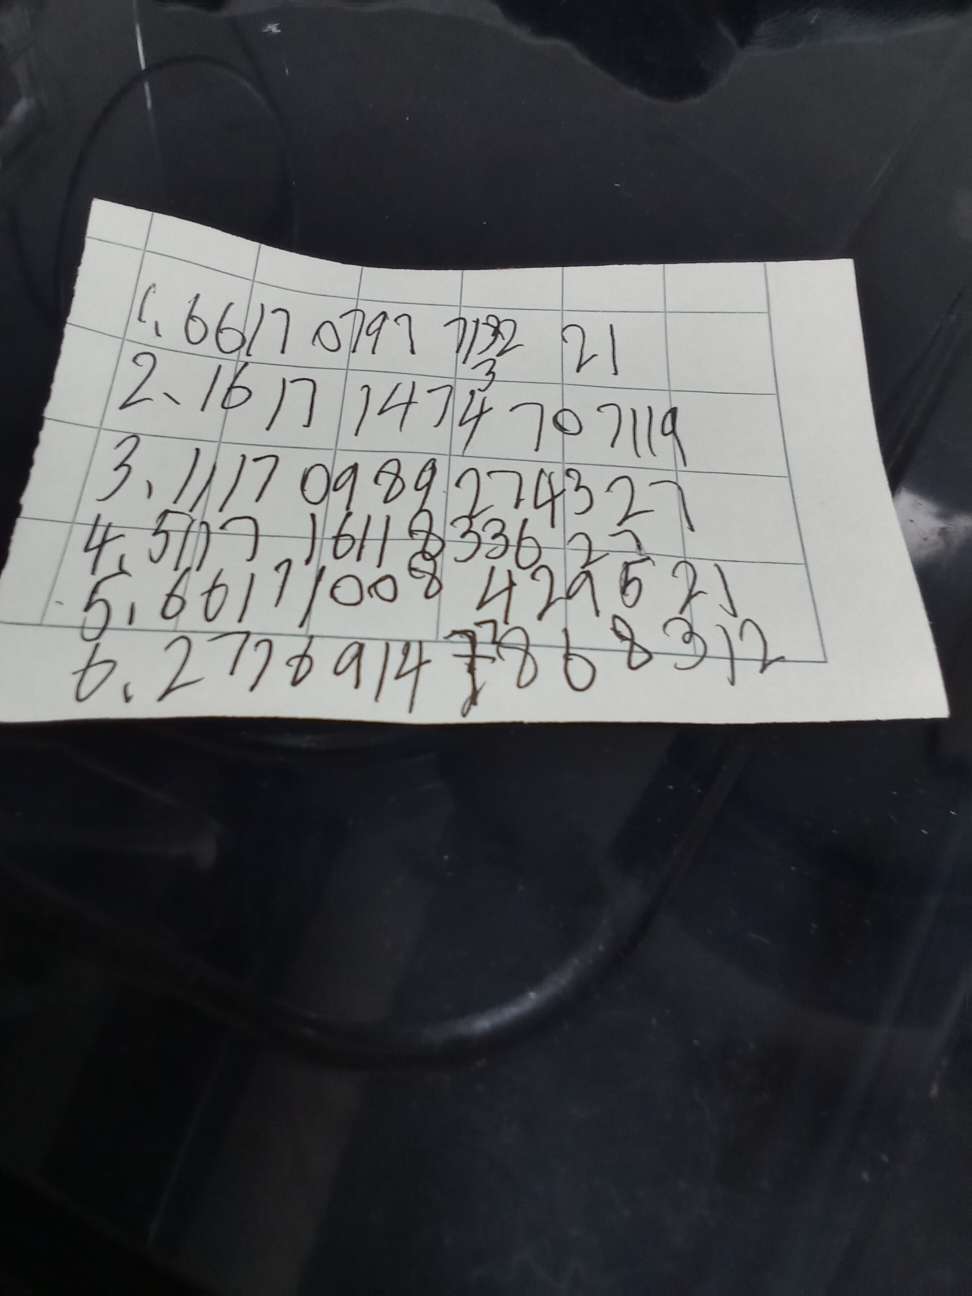 1. 6617 0797 7132 21
2. 1617 1474 707119
3. 1117 0989 274327
4. 5117 16118 336 27
5. 6617 1008 429521
6. 2776914 78 68312